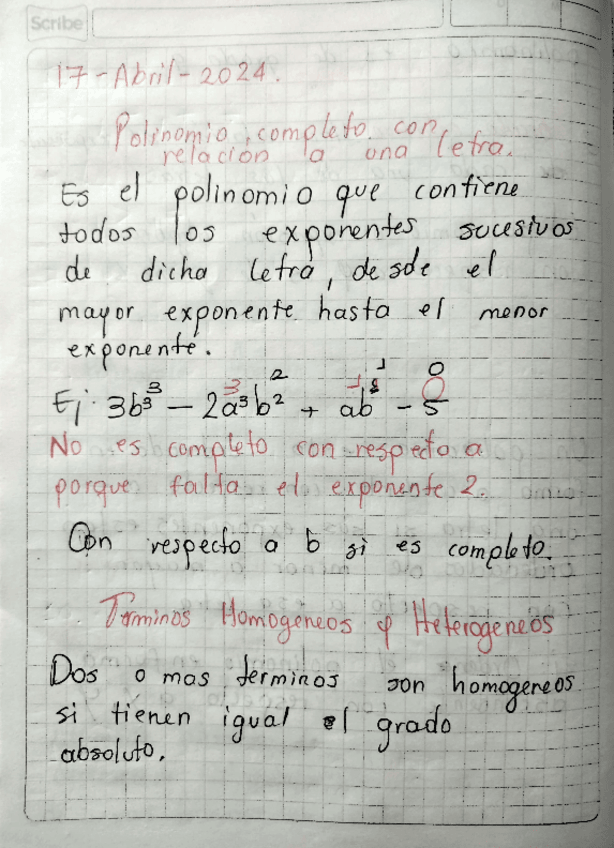 Scribe
17-Abril-2024.
Polinomio, completo con
relación a una letra.
Es el polinomio que contiene
todos los exponentes sucesivos
de dicha letra, desde el
mayor exponente hasta el menor
exponente.
3 3 2 -1 1 0 0
Ej: 3b³ − 2a³b² + ab − 5
No es completo con respecto a
porque falta el exponente 2.
Con respecto a b si es completo.
Terminos Homogeneos y Heterogeneos
Dos o mas terminos son homogeneos
si tienen igual el grado
absoluto.